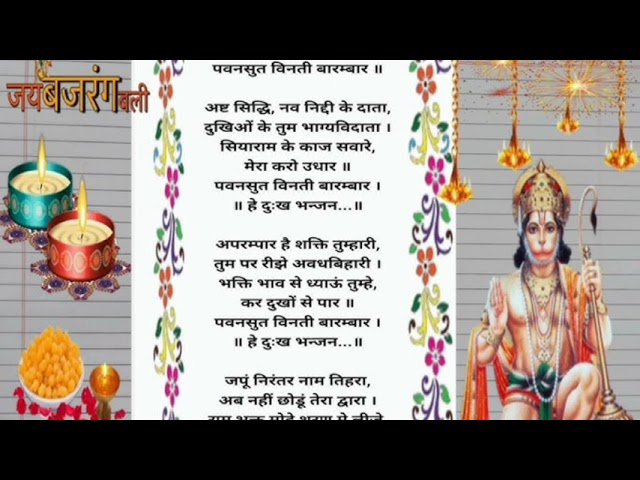 जय बजरंग बली
पवनसुत विनती बारम्बार ॥
अष्ट सिद्धि, नव निद्दी के दाता,
दुखिओं के तुम भाग्यविदाता ।
सियाराम के काज सवारे,
मेरा करो उधार ॥
पवनसुत विनती बारम्बार ।
॥ हे दुःख भन्जन...॥
अपरम्पार है शक्ति तुम्हारी,
तुम पर रीझे अवधबिहारी ।
भक्ति भाव से ध्याऊं तुम्हे,
कर दुखों से पार ॥
पवनसुत विनती बारम्बार ।
॥ हे दुःख भन्जन...॥
जपूं निरंतर नाम तिहरा,
अब नहीं छोडूं तेरा द्वारा ।